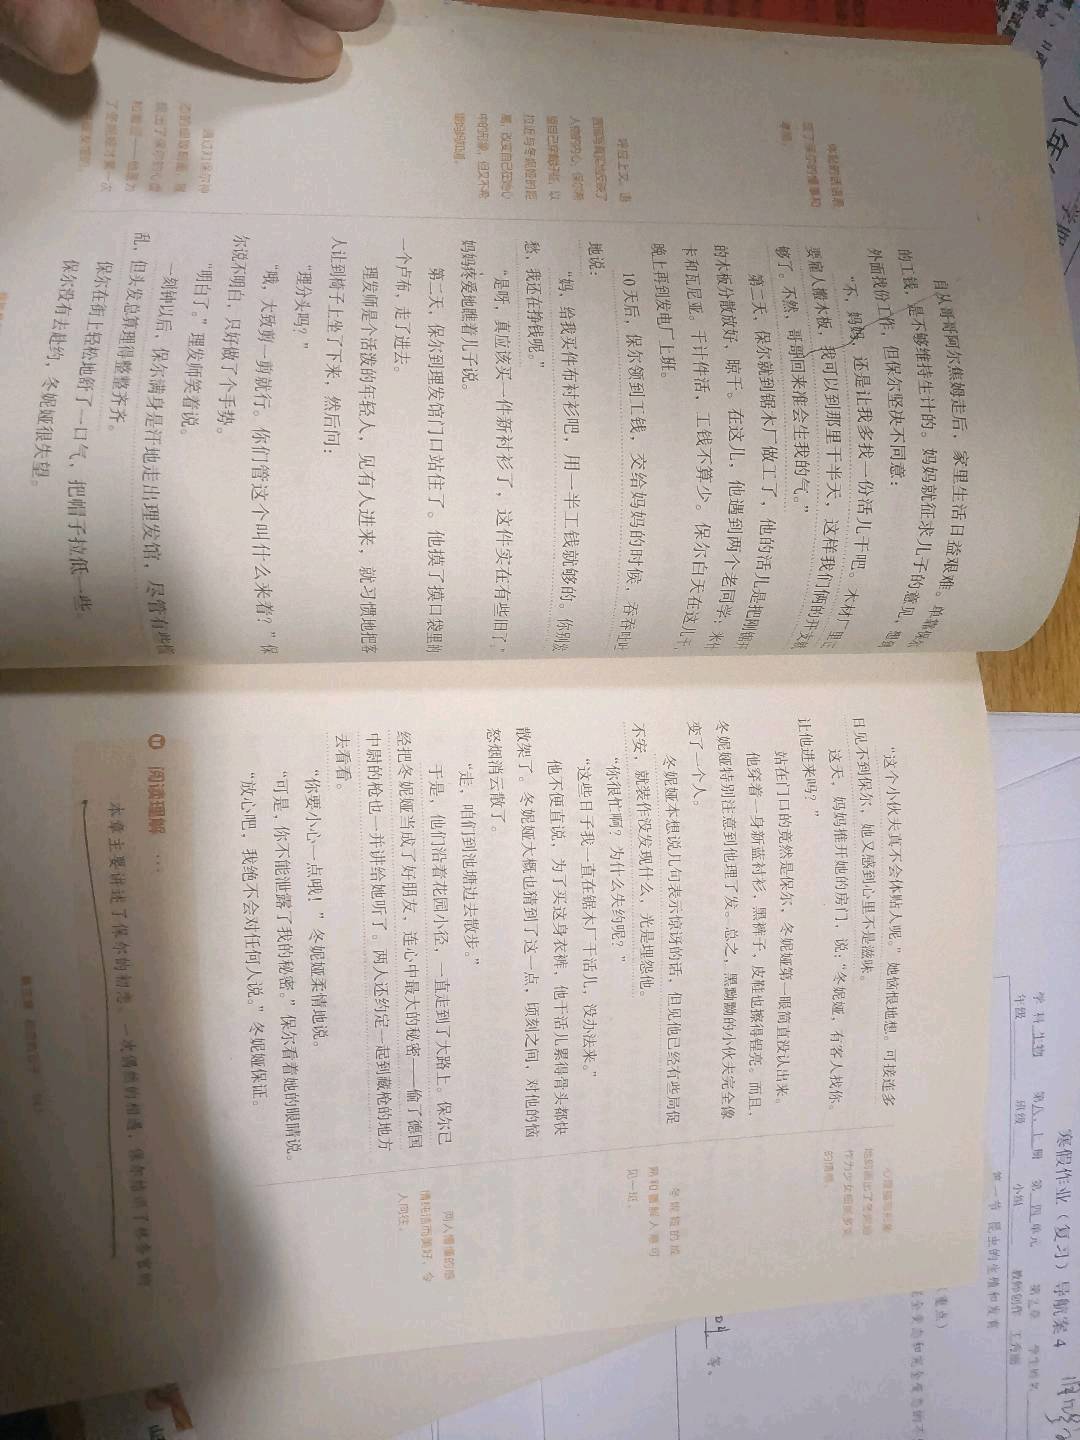 自从哥哥阿尔焦姆走后，家里生活日益艰难。单靠保尔
的工钱，是不够维持生计的。妈妈就征求儿子的意见，想
外面找份工作，但保尔坚决不同意：
“不，妈妈，还是让我多找一份活儿干吧。木材厂里
要雇人搬木板，我可以到那里干半天，这样我们俩的开支
够了。不然，哥哥回来准会生我的气。”
第二天，保尔就到锯木厂做工了，他的活儿是把刚锯
的木板分散放好，晾干。在这儿，他遇到两个老同学：米什
卡和瓦尼亚。干计件活，工钱不算少。保尔白天在这儿干，
晚上再到发电厂上班。
10天后，保尔领到工钱，交给妈妈的时候，吞吞吐吐
地说：
“妈，给我买件布衬衫吧，用一半工钱就够的。你别发
愁，我还在挣钱呢。”
“是呀，真应该买一件新衬衫了，这件实在有些旧了。”
妈妈疼爱地瞧着儿子说。
第二天，保尔到理发馆门口站住了。他摸了摸口袋里的
一个卢布，走了进去。
理发师是个活泼的年轻人，见有人进来，就习惯地把客
人让到椅子上坐了下来，然后问：
“理分头吗？”
“哦，大致剪一剪就行。你们管这个叫什么来着？”保
尔说不明白，只好做了个手势。
“明白了。”理发师笑着说。
一刻钟以后，保尔满身是汗地走出理发馆，尽管有些慌
乱，但头发总算理得整整齐齐。
保尔在街上轻松地舒了一口气，把帽子拉低一些。
保尔没有去赴约，冬妮娅很失望。
体贴的话语表
现了保尔的懂事和
孝顺。
呼应上文。语
言描写真实地反映了
人物的内心，保尔希
望自己穿戴好些，以
拉近与冬妮娅的距
离，改变自己在她心
中的形象，但又不希
望妈妈知道。
通过对保尔神
态的细致刻画，展
现出了保尔的心虚
和难过——他是为
了冬妮娅才第一次
“这个小伙夫真不会体贴人呢。”她恼恨地想。可接连多
日见不到保尔，她又感到心里不是滋味。
这天，妈妈推开她的房门，说：“冬妮娅，有客人找你。
让他进来吗？”
站在门口的竟然是保尔，冬妮娅第一眼简直没认出来。
他穿着一身新蓝衬衫，黑裤子，皮鞋也擦得锃亮。而且，
冬妮娅特别注意到他理了发。总之，黑黝黝的小伙夫完全像
变了一个人。
冬妮娅本想说几句表示惊讶的话，但见他已经有些局促
不安，就装作没发现什么，光是埋怨他。
“你很忙啊？为什么失约呢？”
“这些日子我一直在锯木厂干活儿，没办法来。”
他不便直说，为了买这身衣裤，他干活儿累得骨头都快
散架了。冬妮娅大概也猜到了这一点，顷刻之间，对他的恼
怒烟消云散了。
“走，咱们到池塘边去散步。”
于是，他们沿着花园小径，一直走到了大路上。保尔已
经把冬妮娅当成了好朋友，连心中最大的秘密——偷了德国
中尉的枪也一并讲给她听了。两人还约定一起到藏枪的地方
去看看。
“你要小心一点哦！”冬妮娅柔情地说。
“可是，你不能泄露了我的秘密。”保尔看着她的眼睛说。
“放心吧，我绝不会对任何人说。”冬妮娅保证。
心理描写形象
地刻画出了冬妮娅
作为少女细腻多变
的情感。
冬妮娅的成
熟和善解人意可
见一斑。
两人懵懂的感
情纯洁而美好，令
人向往。
阅读理解
本章主要讲述了保尔的初恋。一次偶然的相遇，保尔结识了林务官的
寒假作业（复习）导航案4
学科 生物 第八上册 第四单元 第2章 学生姓名
年级 班级 小组 教师创作
第一节 昆虫的生殖和发育
（重点）
等。